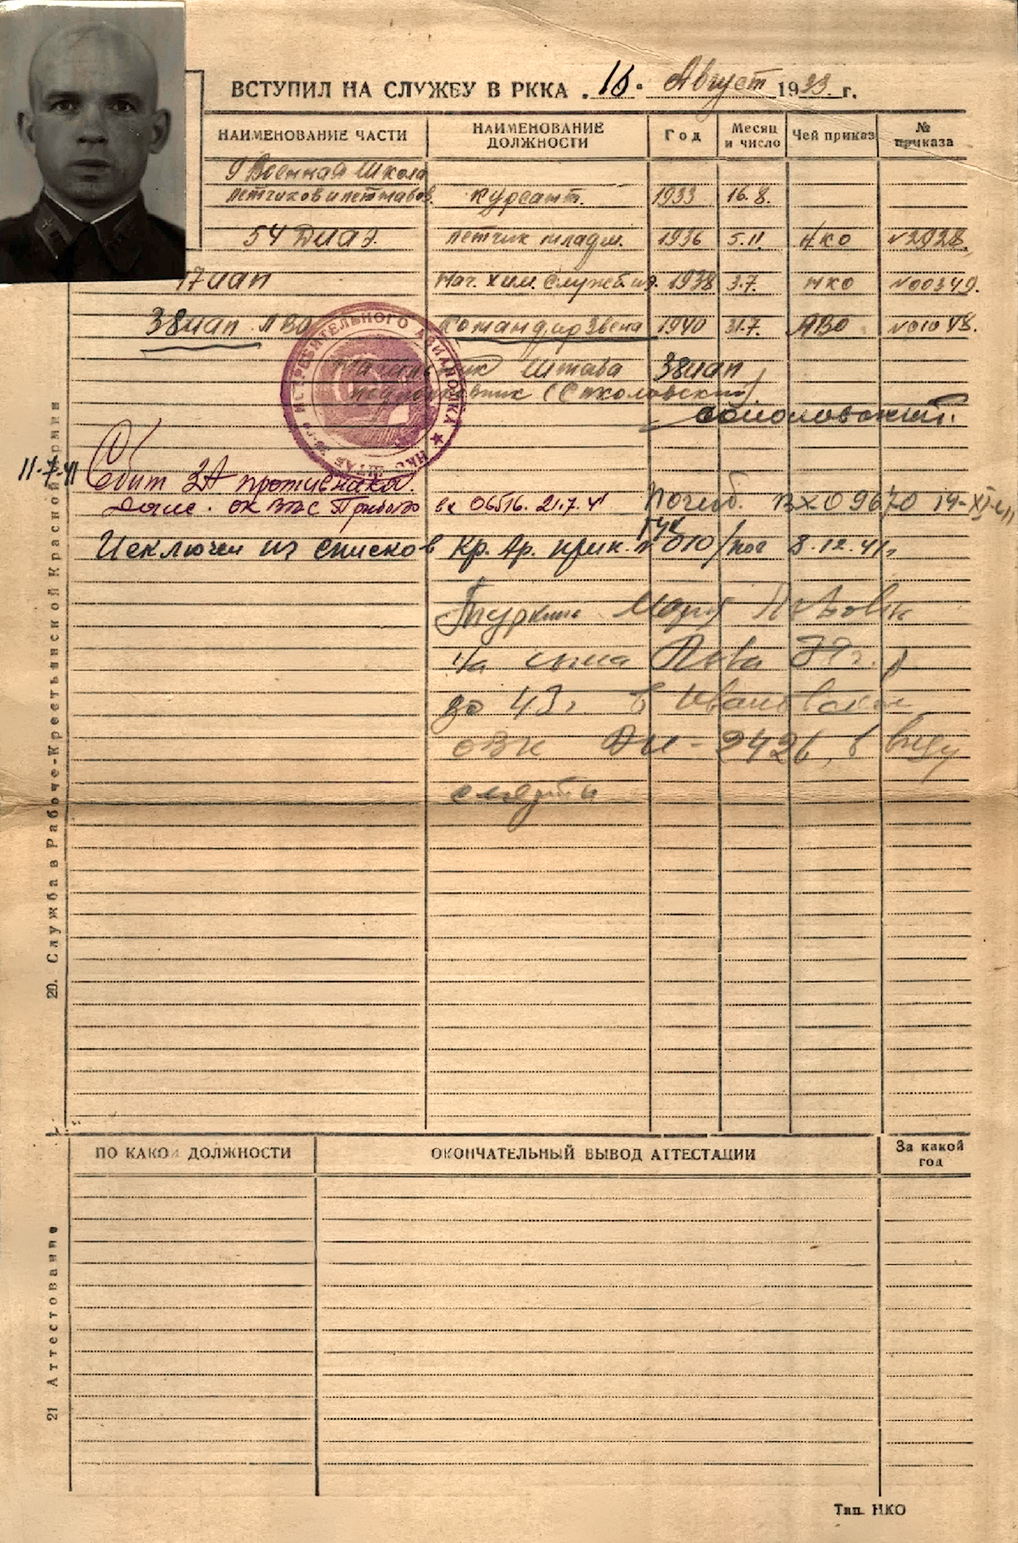 ВСТУПИЛ НА СЛУЖБУ В РККА „16“ Август 1933 г.
НАИМЕНОВАНИЕ ЧАСТИ НАИМЕНОВАНИЕ ДОЛЖНОСТИ Год Месяц и число Чей приказ № приказа
9 Военная Школа
летчиков и летнабов. Курсант. 1933 16.8.
54 летчик младш. 1936 5.11 НКО №2928.
17 иап Нач. хим. службы 1938 3.7. НКО №00349.
38 иап ЛВО Командир Звена 1940 31.7. ЛВО №01048.
Начальник Штаба 38 иап
подполковник
ИСТРЕБИТЕЛЬНОГО АВИАПОЛКА ★ НКО ШТАБ
11-7-41 Сбит ЗА противника
вх 06516. 21.7.41 Погиб. вх 09670 19-XI-41
Исключен из списков Кр. Ар. прик. ГУК №010/пог 8.12.41г
Мария
на сына Льва 39 г. р
до 43 г в Ивановский
ОВК 2426, в виду
смерти
20. Служба в Рабоче-Крестьянской Красной Армии
ПО КАКОЙ ДОЛЖНОСТИ ОКОНЧАТЕЛЬНЫЙ ВЫВОД АТТЕСТАЦИИ За какой год
21 Аттестование
Тип. НКО